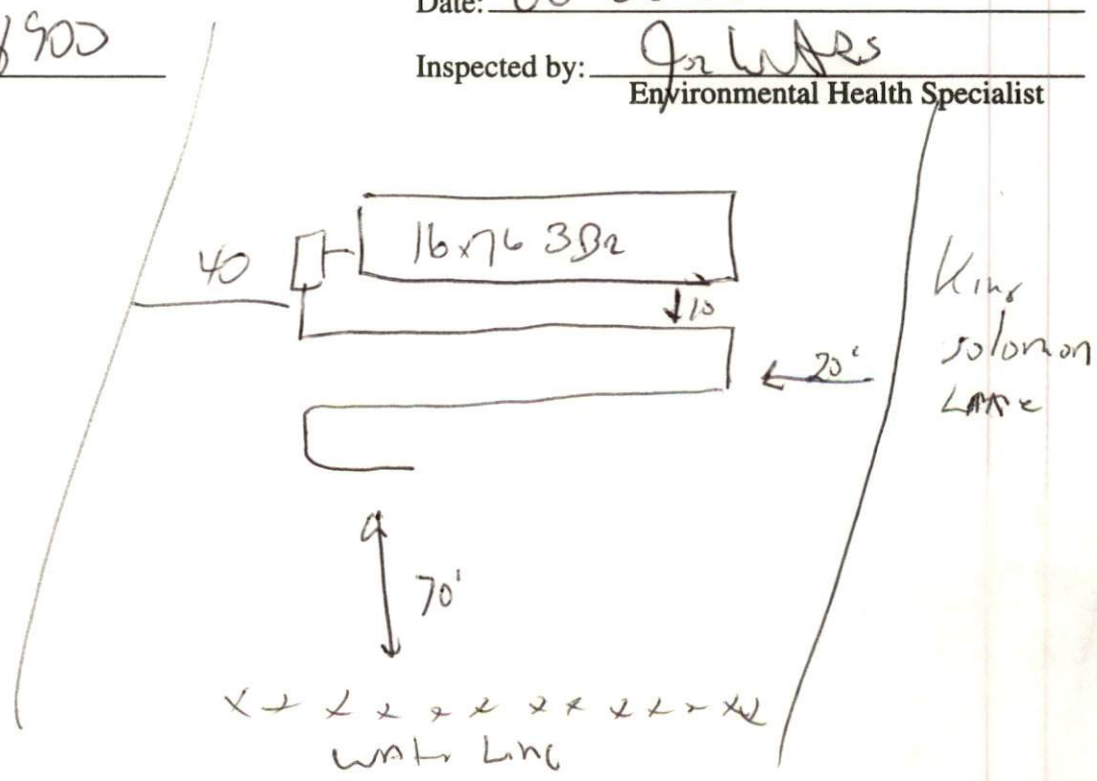 Date:
900
Inspected by:
Environmental Health Specialist
16x76 3Br
40
10
20'
King
solomon
Lane
70'
Water Line